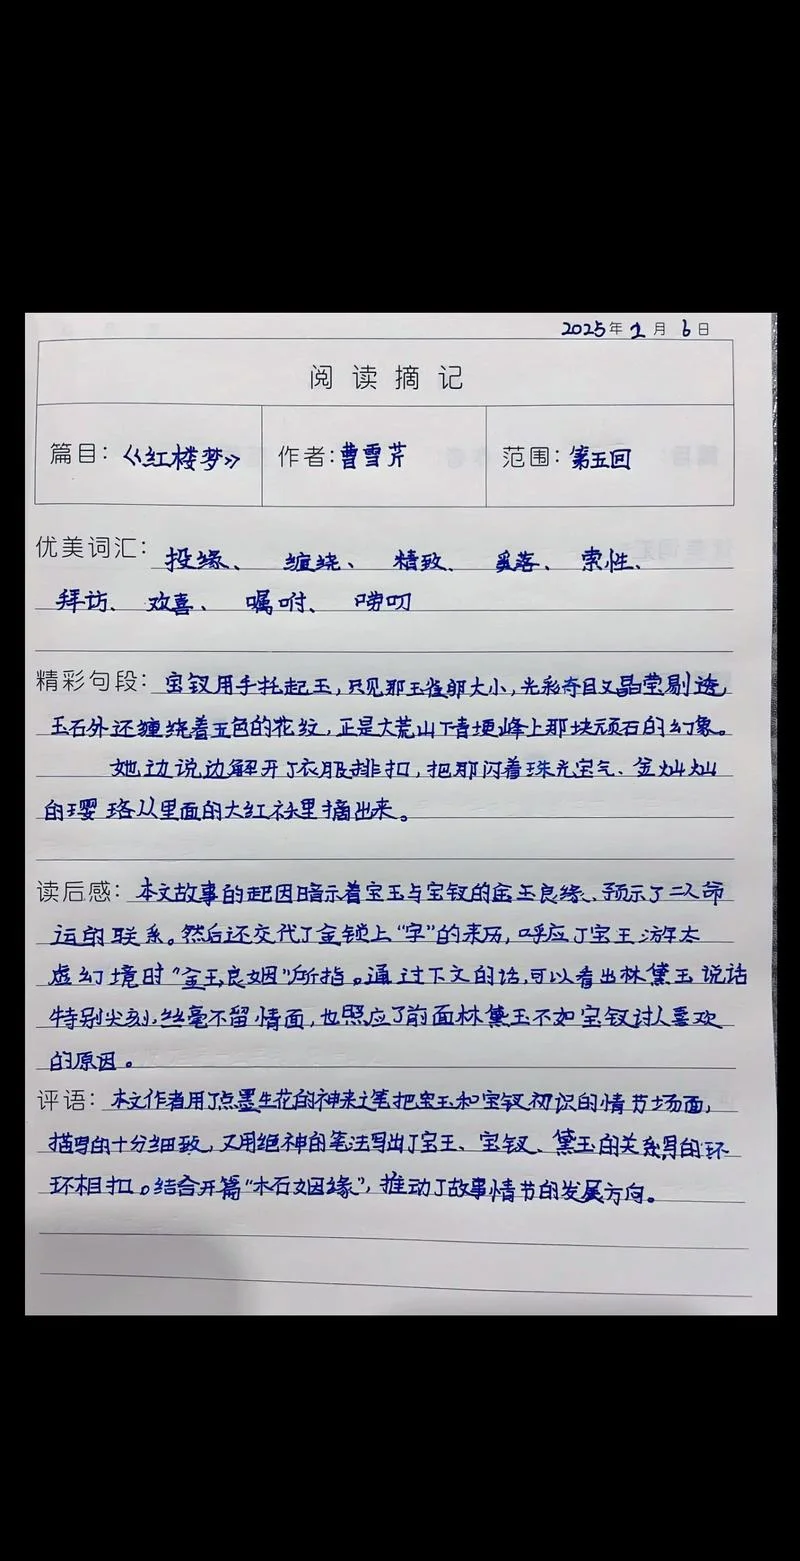 2025年1月6日
阅读摘记
篇目：《红楼梦》 作者：曹雪芹 范围：第五回
优美词汇： 投缘、 缠绕、 精致、 奚落、 索性、
拜访、 欢喜、 嘱咐、 唠叨
精彩句段： 宝钗用手托起玉，只见那玉雀卵大小，光彩夺目又晶莹剔透，
玉石外还缠绕着五色的花纹，正是大荒山下青埂峰上那块顽石的幻象。
她边说边解开了衣服排扣，把那闪着珠光宝气、金灿灿
的璎珞从里面的大红袄里摘出来。
读后感： 本文故事的起因暗示着宝玉与宝钗的金玉良缘、预示了二人命
运的联系。然后还交代了金锁上“字”的来历，呼应了宝玉游太
虚幻境时“金玉良姻”所指。通过下文的话，可以看出林黛玉说话
特别尖刻，丝毫不留情面，也照应了前面林黛玉不如宝钗讨人喜欢
的原因。
评语： 本文作者用了点墨生花的神来之笔把宝玉和宝钗初识的情节场面，
描写的十分细致，又用绝神的笔法写出了宝玉、宝钗、黛玉的关系写的环
环相扣。结合开篇“木石姻缘”，推动了故事情节的发展方向。